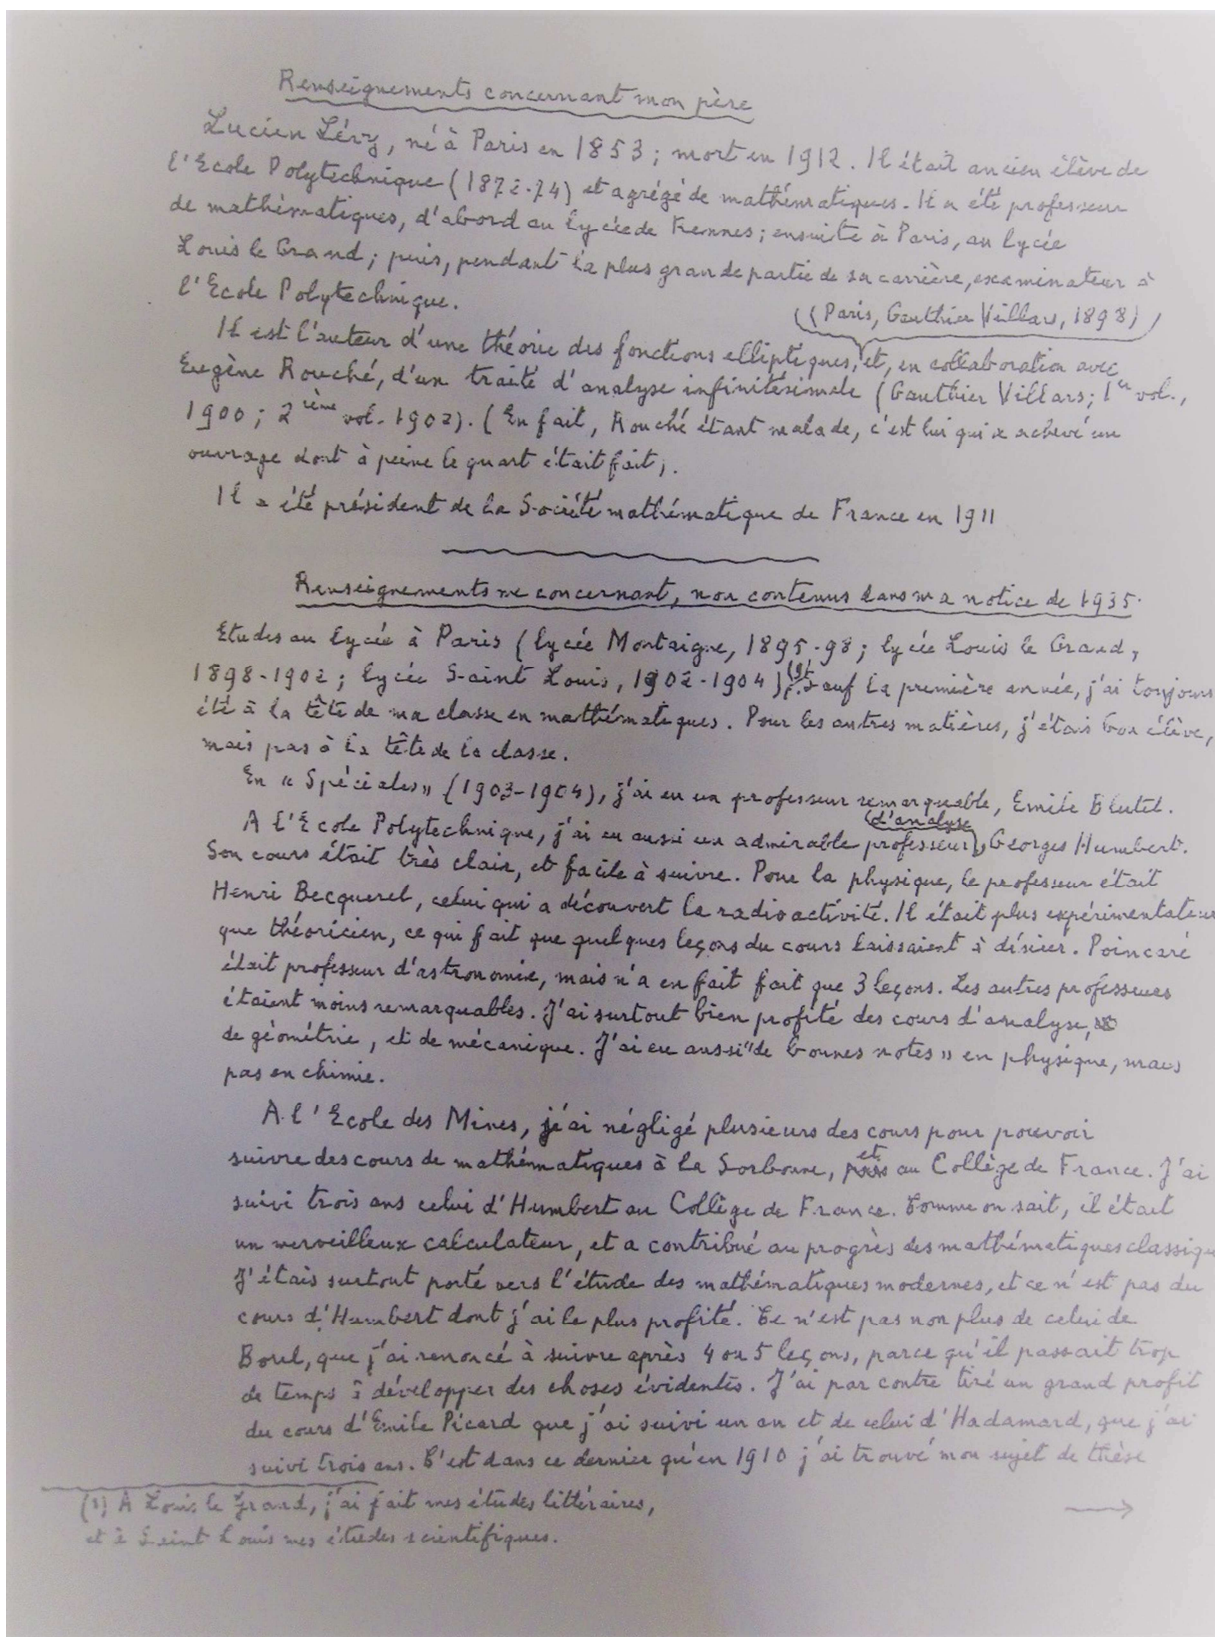 Renseignements concernant mon père
Lucien Lévy, né à Paris en 1853 ; mort en 1912. Il était ancien élève de
l'Ecole Polytechnique (1872-74) et agrégé de mathématiques. Il a été professeur
de mathématiques, d'abord au lycée de Rennes ; ensuite à Paris, au lycée
Louis le Grand ; puis, pendant la plus grande partie de sa carrière, examinateur à
l'Ecole Polytechnique.
(Paris, Gauthier Villars, 1898)
Il est l'auteur d'une théorie des fonctions elliptiques, et, en collaboration avec
Eugène Rouché, d'un traité d'analyse infinitésimale (Gauthier Villars ; 1er vol.,
1900 ; 2ième vol. 1902). (En fait, Rouché étant malade, c'est lui qui a achevé un
ouvrage dont à peine le quart était fait).
Il a été président de la Société mathématique de France en 1911
Renseignements me concernant, non contenus dans ma notice de 1935.
Etudes au lycée à Paris (lycée Montaigne, 1895-98 ; lycée Louis le Grand,
1898-1902 ; lycée Saint Louis, 1902-1904)(1). Sauf la première année, j'ai toujours
été à la tête de ma classe en mathématiques. Pour les autres matières, j'étais bon élève,
mais pas à la tête de la classe.
En « Spéciales » (1903-1904), j'ai eu un professeur remarquable, Emile Blutel.
A l'Ecole Polytechnique, j'ai eu aussi un admirable professeur d'analyse, Georges Humbert.
Son cours était très clair, et facile à suivre. Pour la physique, le professeur était
Henri Becquerel, celui qui a découvert la radioactivité. Il était plus expérimentateur
que théoricien, ce qui fait que quelques leçons du cours laissaient à désirer. Poincaré
était professeur d'astronomie, mais n'a en fait fait que 3 leçons. Les autres professeurs
étaient moins remarquables. J'ai surtout bien profité des cours d'analyse,
de géométrie, et de mécanique. J'ai eu aussi "de bonnes notes" en physique, mais
pas en chimie.
A l'Ecole des Mines, j'ai négligé plusieurs des cours pour pouvoir
suivre des cours de mathématiques à la Sorbonne, et au Collège de France. J'ai
suivi trois ans celui d'Humbert au Collège de France. Comme on sait, il était
un merveilleux calculateur, et a contribué au progrès des mathématiques classiqu
J'étais surtout porté vers l'étude des mathématiques modernes, et ce n'est pas du
cours d'Humbert dont j'ai le plus profité. Ce n'est pas non plus de celui de
Borel, que j'ai renoncé à suivre après 4 ou 5 leçons, parce qu'il passait trop
de temps à développer des choses évidentes. J'ai par contre tiré un grand profit
du cours d'Emile Picard que j'ai suivi un an et de celui d'Hadamard, que j'ai
suivi trois ans. C'est dans ce dernier qu'en 1910 j'ai trouvé mon sujet de thèse
(1) A Louis le Grand, j'ai fait mes études littéraires,
et à Saint Louis mes études scientifiques.
→